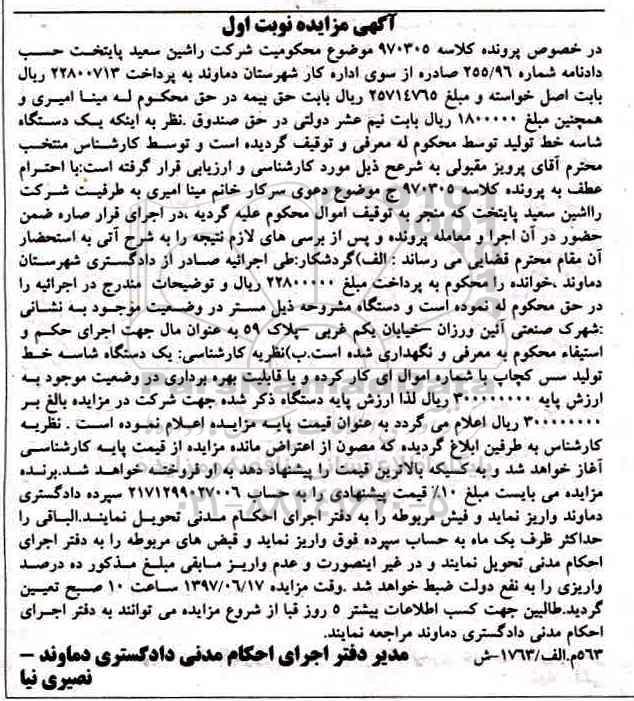 آگهی مزایده نوبت اول
در خصوص پرونده کلاسه ۹۷۰۳۰۵ موضوع محکومیت شرکت راشین سعید پایتخت حسب
دادنامه شماره ۲۵۵/۹۶ صادره از سوی اداره کار شهرستان دماوند به پرداخت ۲۲۸۰۰۷۱۳ ریال
بابت اصل خواسته و مبلغ ۲۵۷۱۴۷۶۵ ریال بابت حق بیمه در حق محکوم له مینا امیری و
همچنین مبلغ ۱۸۰۰۰۰۰ ریال بابت نیم عشر دولتی در حق صندوق .نظر به اینکه یک دستگاه
شاسه خط تولید توسط محکوم له معرفی و توقیف گردیده است و توسط کارشناس منتخب
محترم آقای پرویز مقبولی به شرعح ذیل مورد کارشناسی و ارزیابی قرار گرفته است:با احترام
عطف به پرونده کلاسه ۹۷۰۳۰۵ج موضوع دعوی سرکار خانم مینا امیری به طرفیت شرکت
رااشین سعید پایتخت که منجر به توقیف اموال محکوم علیه گردیه ،در اجرای قرار صاره ضمن
حضور در آن اجرا و معامله پرونده و پس از برسی های لازم نتیجه را به شرح آتی به استحضار
آن مقام محترم قضایی می رساند : الف)گردشکار:طی اجرائیه صادر از دادگستری شهرستان
دماوند ،خوانده را محکوم به پرداخت مبلغ ۲۲۸۰۰۰۰۰ ریال و توضیحات مندرج در اجرائیه را
در حق محکوم له نموده است و دستگاه مشروحه ذیل مستر در وضعیت موجود به نشانی
:شهرک صنعتی آئین ورزان –خیابان یکم غربی –پلاک ۵۹ به عنوان مال جهت اجرای حکم و
استیفاء محکوم به معرفی و نگهداری شده است.ب)نظریه کارشناسی: یک دستگاه شاسه خط
تولید سس کچاپ با شماره اموال ای کار کرده و با قابلیت بهره برداری در وضعیت موجود به
ارزش پایه ۳۰۰۰۰۰۰۰۰ ریال لذا ارزش پایه دستگاه ذکر شده جهت شرکت در مزایده بالغ بر
۳۰۰۰۰۰۰۰۰ ریال اعلام می گردد به عنوان قیمت پایه مزایده اعلام نموده است . نظریه
کارشناس به طرفین ابلاغ گردیده که مصون از اعتراض مانده مزایده از قیمت پایه کارشناسی
آغاز خواهد شد و به کسیکه بالاترین قیمت را پیشنهاد دهد به او فروخته خواهد شد.برنده
مزایده می بایست مبلغ ۱۰٪ قیمت پیشنهادی را به حساب ۲۱۷۱۲۹۹۰۲۷۰۰۶ سپرده دادگستری
دماوند واریز نماید و فیش مربوطه را به دفتر اجرای احکام مدنی تحویل نمایند.الباقی را
حداکثر ظرف یک ماه به حساب سپرده فوق واریز نماید و قبض های مربوطه را به دفتر اجرای
احکام مدنی تحویل نمایند و در غیر اینصورت و عدم واریز مابقی مبلغ مذکور ده درصد
واریزی را به نفع دولت ضبط خواهد شد .وقت مزایده ۱۳۹۷/۰۶/۱۷ ساعت ۱۰ صبح تعیین
گردید.طالبین جهت کسب اطلاعات بیشتر ۵ روز قبا از شروع مزایده می توانند به دفتر اجرای
احکام مدنی دادگستری دماوند مراجعه نمایند.
۵۶۳م.الف/۱۷۶۳-ش مدیر دفتر اجرای احکام مدنی دادگستری دماوند –
نصیری نیا